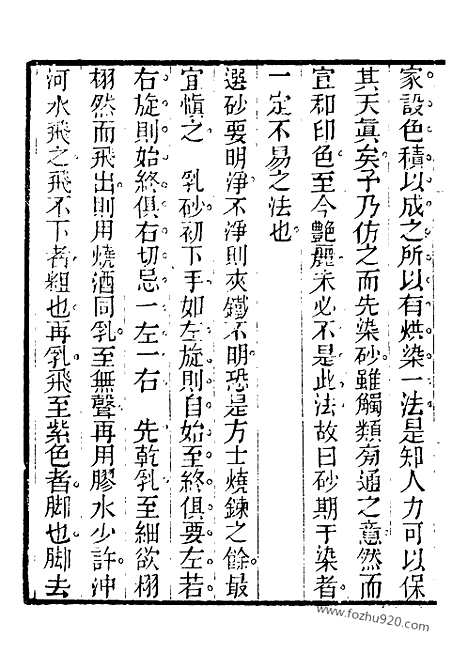 家設色積以成之所以有烘染一法是知人力可以保
其天眞矣予乃仿之而先染砂雖觸類旁通之意然而
宣和印色至今艷麗未必不是此法故曰砂期于染者
一定不易之法也
選砂要明淨不淨則夾鐵不明恐是方士燒鍊之餘最
宜愼之　乳砂初下手如左旋則自始至終俱要左若
右旋則始終俱右切忌一左一右　先乾乳至細欲栩
栩然而飛出則用燒酒同乳至無聲再用膠水少許沖
河水飛之飛不下者粗也再乳飛至紫色者脚也脚去
www.fozhu920.com